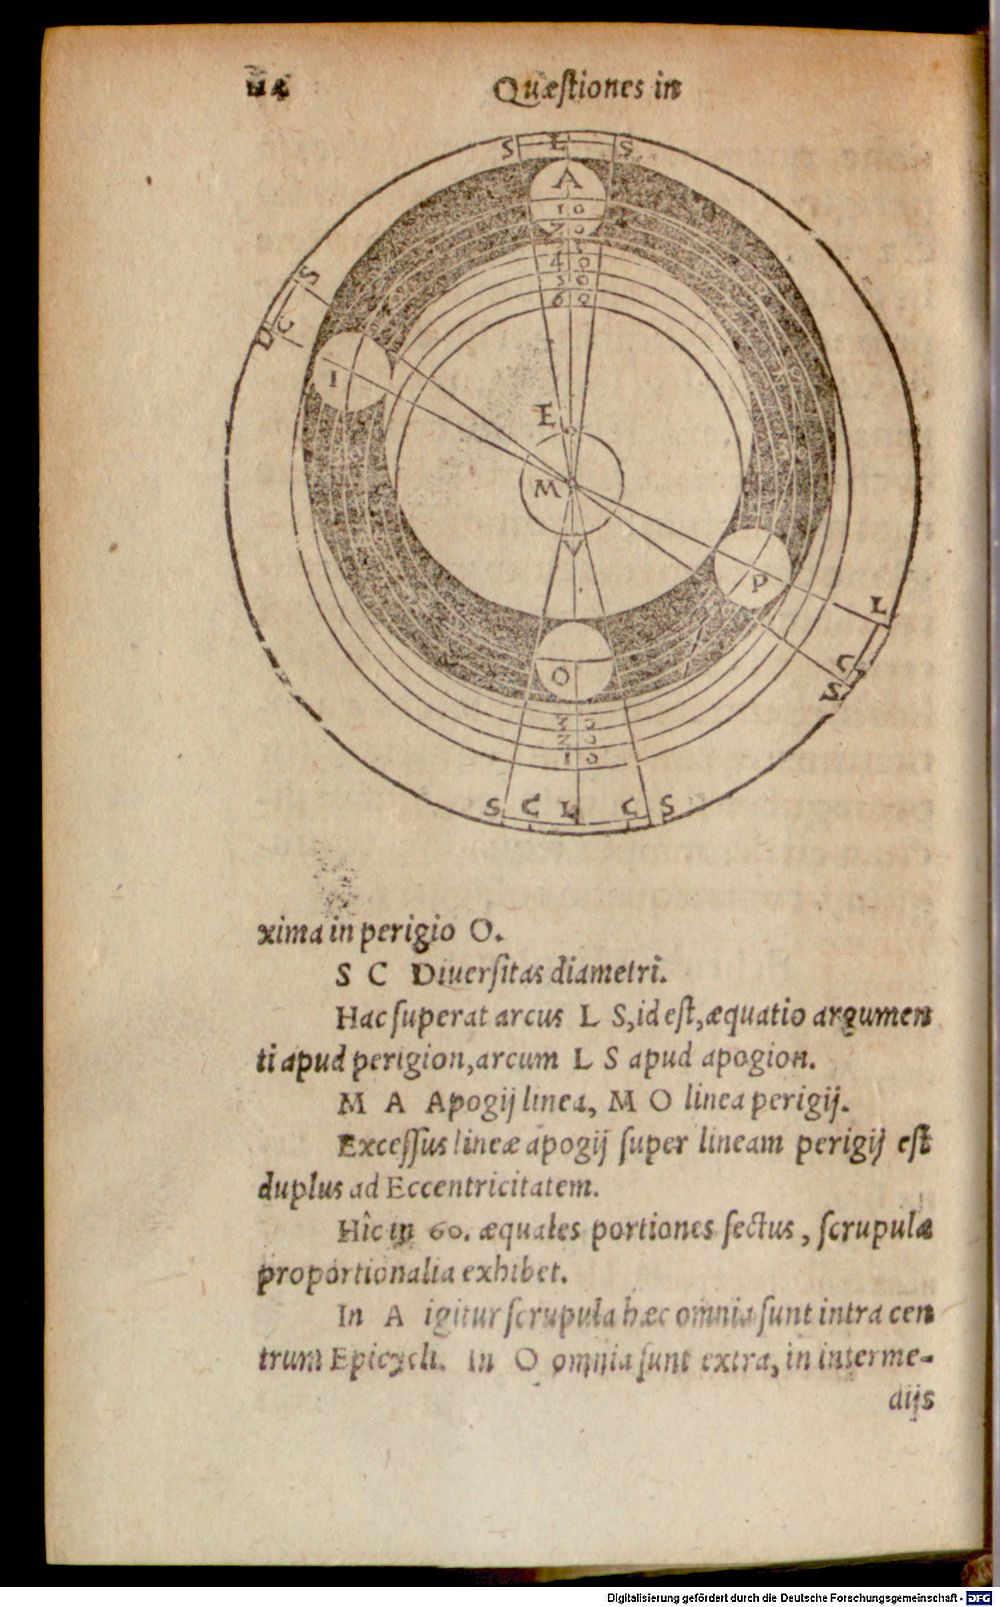 114
Quæſtiones in
S L S
A
10
20
40
50
60
S
C
D
I
E
M
V
P
L
C
S
O
30
20
10
S C L C S
xima in perigio O.
S C Diuerſitas diametri.
Hac ſuperat arcus L S, id eſt, æquatio argumen
ti apud perigion, arcum L S apud apogion.
M A Apogij linea, M O linea perigij.
Exceſſus lineæ apogij ſuper lineam perigij eſt
duplus ad Eccentricitatem.
Hîc in 60. æquales portiones ſectus, ſcrupula
proportionalia exhibet.
In A igitur ſcrupula hæc omnia ſunt intra cen
trum Epicycli. In O omnia ſunt extra, in interme-
dijs
Digitalisierung gefördert durch die Deutsche Forschungsgemeinschaft - DFG